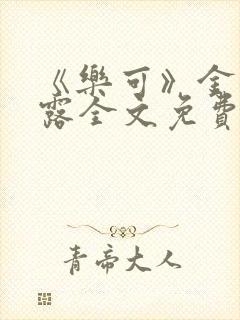 《樂可》金
露全文免費
青帝大人